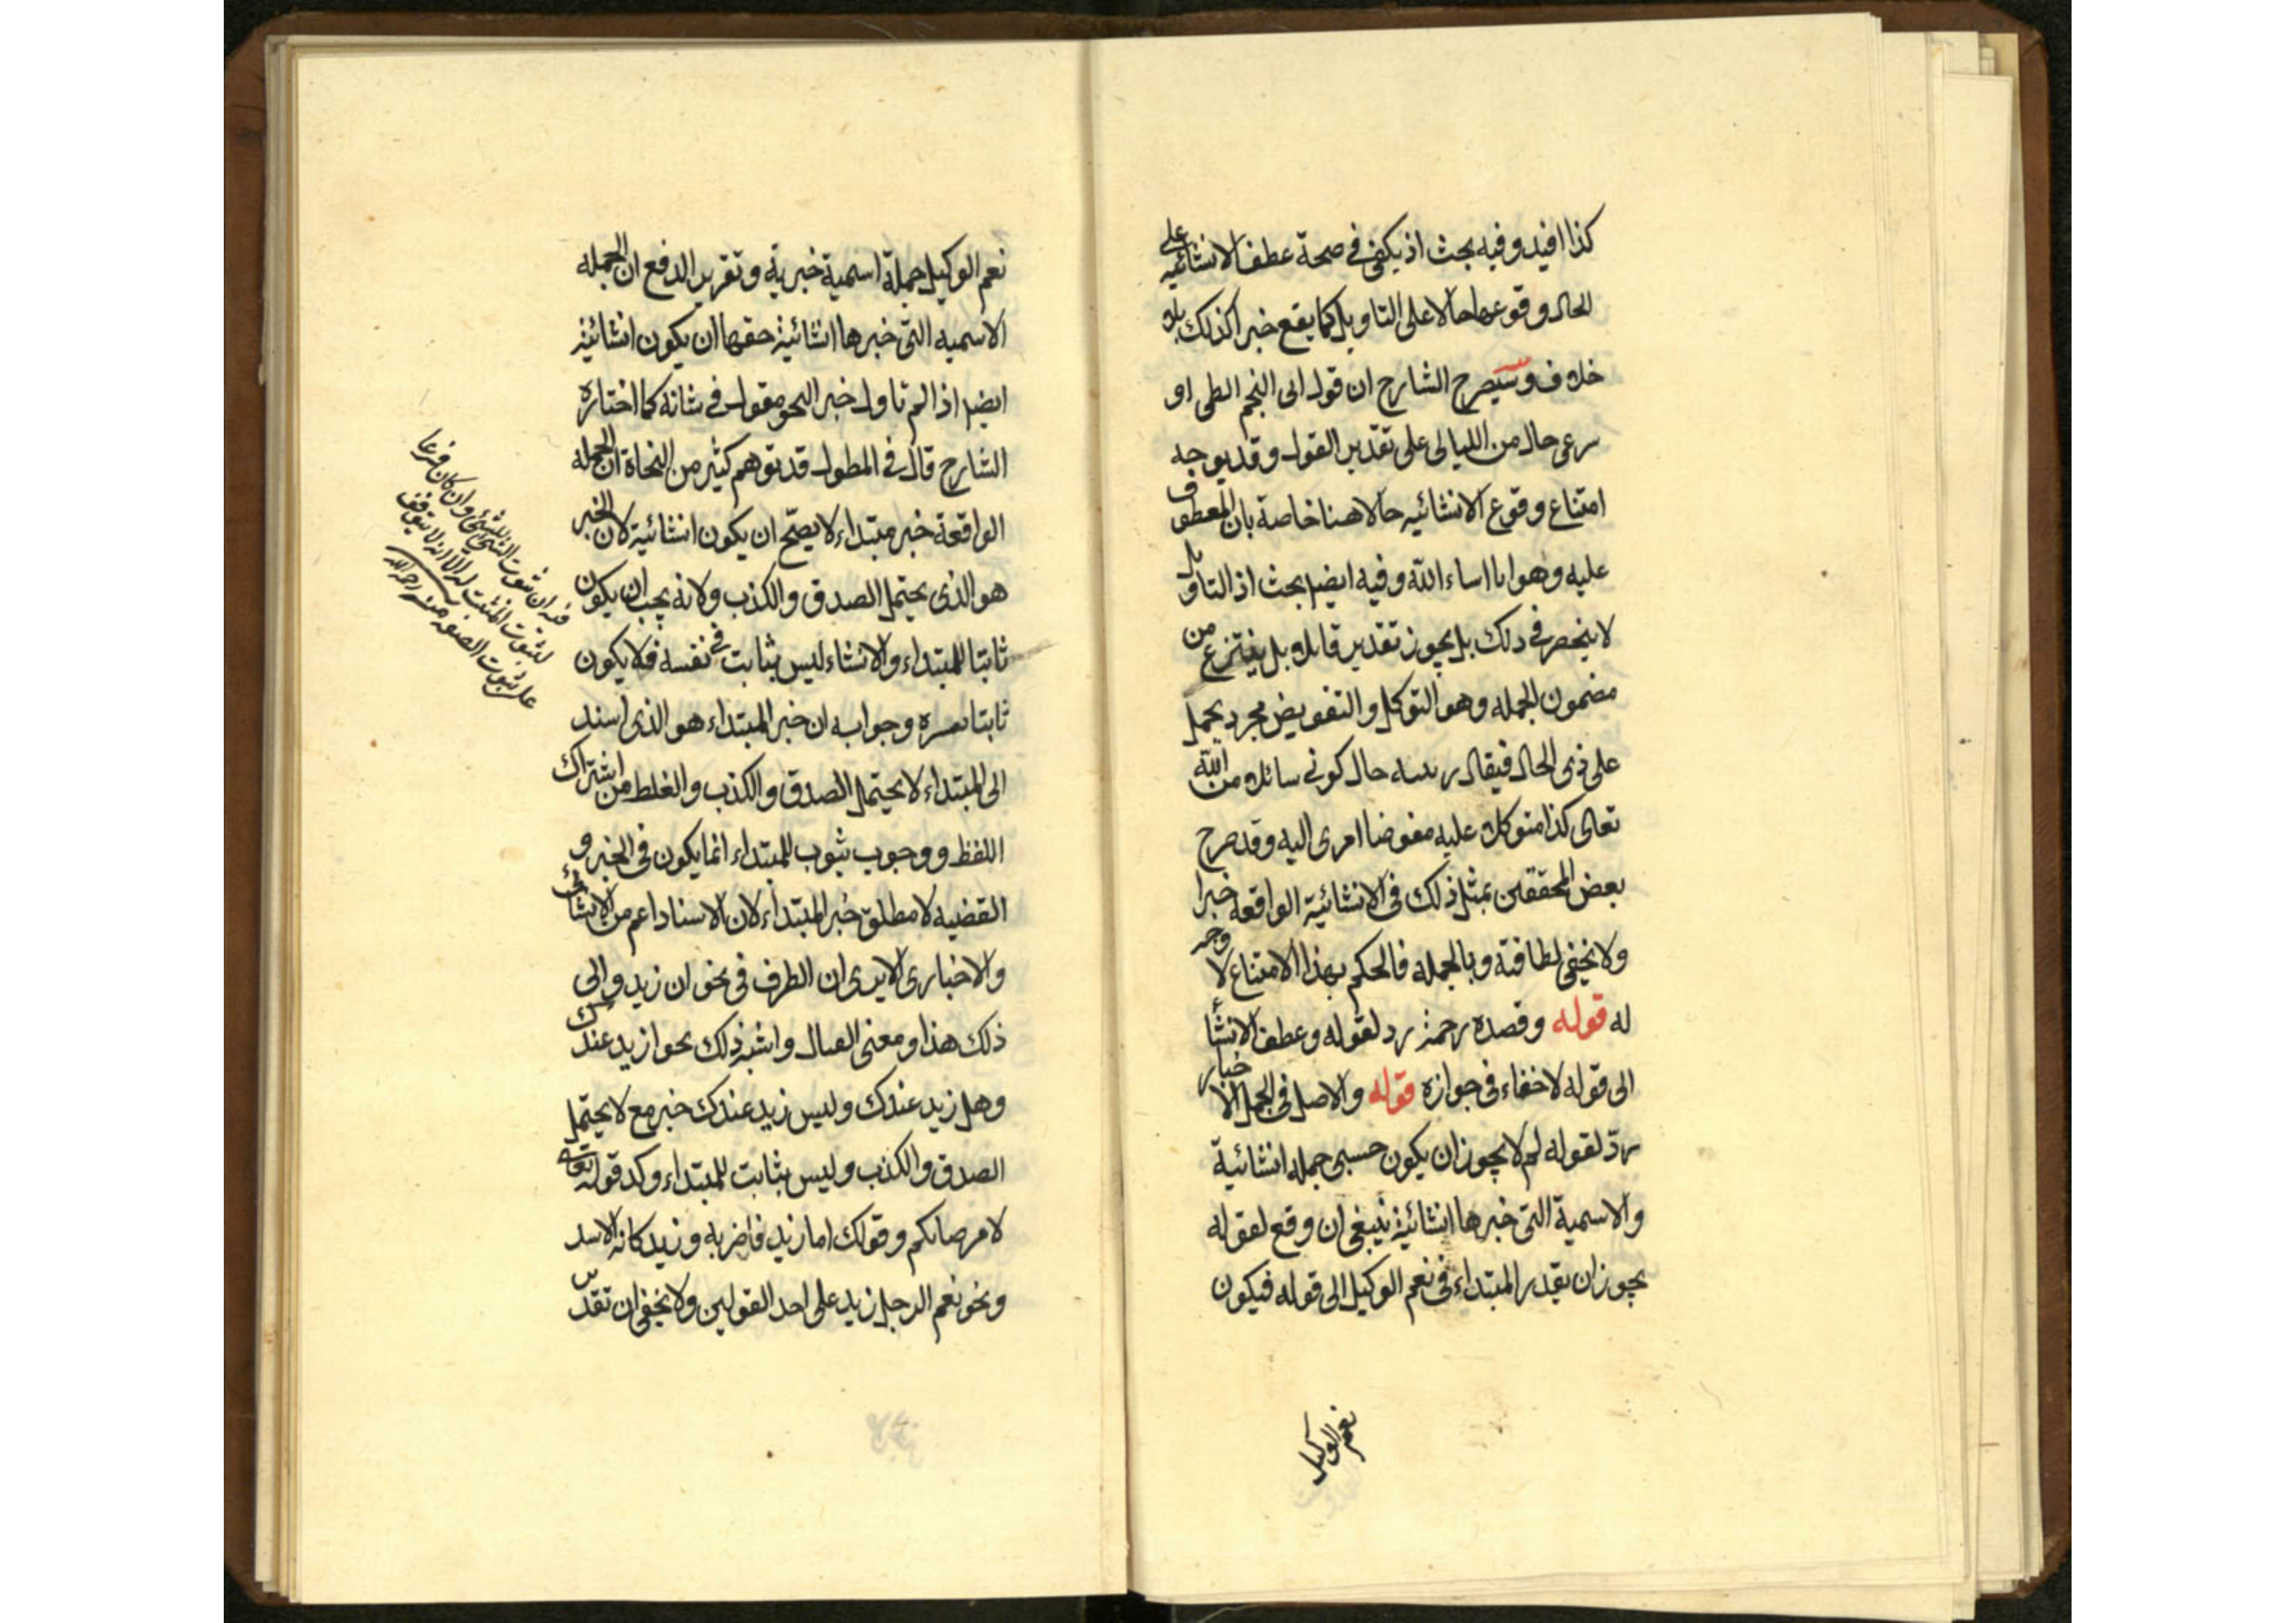 كذا افيد وفيه بحث اذ يكفى فى صحة عطف الانشائيه على
الحال وقوعها حالا على التاويل كما يقع خبرا كذلك بلا
خلاف وسيصرح الشارح ان قول ابى النجم الطى او
سرعى حال من الليالى على تقدير القول وقد يوجه
امتناع وقوع الانشائيه حالا هنا خاصة بان المعطوف
عليه وهو اما اساء الله وفيه ايضا بحث اذ التاويل
لا ينحصر فى ذلك بل يجوز تقدير قايلا بل ينتزع من
مضمون الجمله وهو التوكل والتفويض مجرد يحمل
على ذى الحال فيقال حال كونى سائلا من الله
تعالى كذا متوكلا عليه مفوضا امرى اليه وقد صرح
بعض المحققين بمثل ذلك فى الانشائية الواقعه خبرا
ولا يخفى لطافته وبالجمله فالحكم بهذا الامتناع لا وجه
له قوله وقصده رحمه رد لقوله وعطف الانشأ
الى قوله لا خفاء فى جوازه قوله والاصل فى الجمل الاخبار
ردّ لقوله لم لا يجوز ان يكون حسبى جمله انشائية
والاسمية التى خبرها انشائية ينبغى ان وقع لقوله
يجوز ان يقدر المبتداء فى نعم الوكيل الى قوله فيكون
نعم الوكيل
نعم الوكيل جملة اسمية خبرية وتقرير الدفع ان الجمله
الاسميه التى خبرها انشائية حقها ان يكون انشائية
ايضا اذا لم تاول خبر النحو مقول فى شانه كما اختاره
الشارح قال فى المطول قد توهم كثير من النحاة ان الجمله
الواقعة خبر مبتداء لا يصحّ ان يكون انشائية لان الخبر
هو الذى يحتمل الصدق والكذب ولانه يجب ان يكون
ثابتا للمبتداء والانشاء ليس بثابت فى نفسه فلا يكون
ثابتا لغيره وجوابه ان خبر المبتداء هو الذى اسند
الى المبتداء لا يحتمل الصدق والكذب والغلط من اشتراك
اللفظ ووجوب ثبوب للمبتداء انما يكون فى الخبر و
القضيه لا مطلق خبر المبتداء لان الاسناد اعم من الانشائى
والاخبارى الا يرى ان الظرف فى نحو ان زيد والى
ذلك هذا ومعنى القبال واشبه ذلك نحو ازيد عندك
وهل زيد عندك وليس زيد عندك خبر مع لا يحتمل
الصدق والكذب وليس بثابت للمبتداء وكذ قوله تعالى
لا مرحبا بكم وقولك اما زيد فاضربه وزيد كانه الاسد
ونحو نعم الرجل زيد على احد القولين ولا يخفى ان تقدير
فيه ان ثبوت الشئ للشئ وان كان فرعا
لثبوت المثبت له الا انه لا يتوقف
على ثبوت الصفه منه رحمه الله